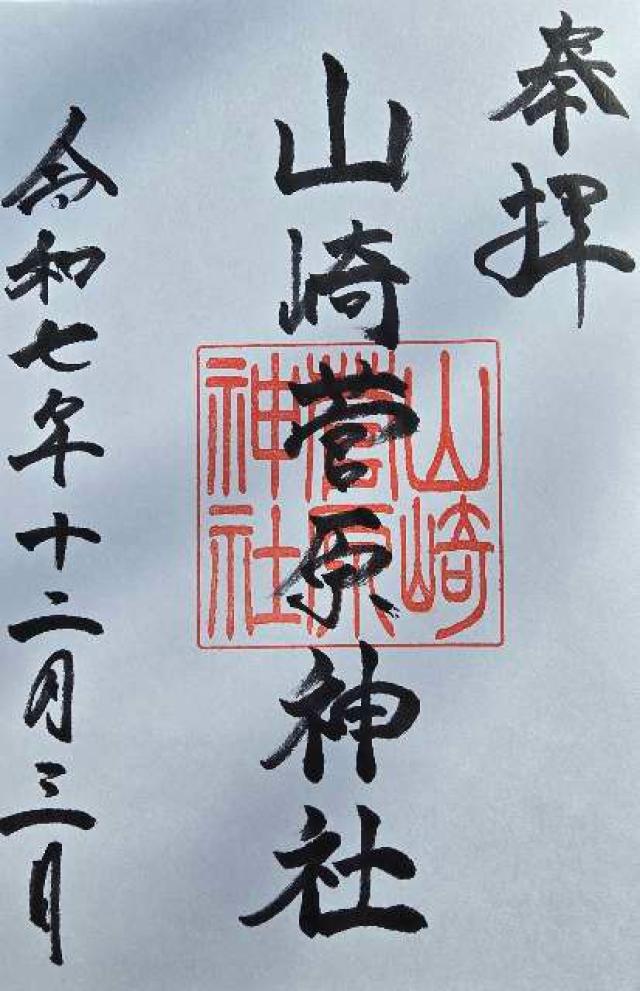 奉拝
山崎菅原神社
山崎
菅原
神社
令和七年十二月三日